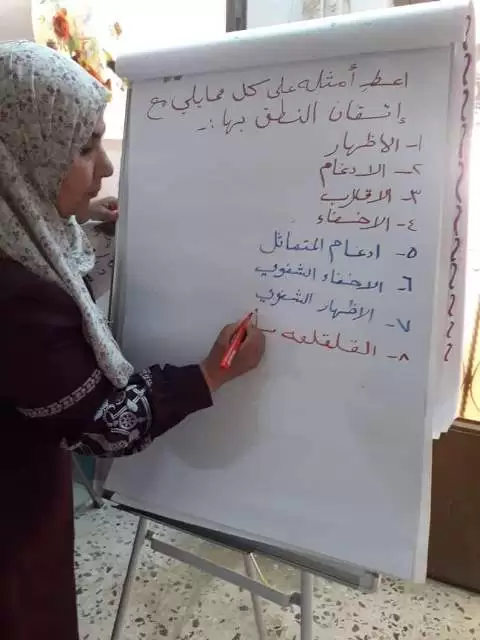 اعطِ أمثله على كل ممايلي مع
إتقان النطق بها :-
١- الاظهار
٢- الادغام
٣- الاقلاب
٤- الاخفاء
٥- ادغام المتماثل
٦- الاخفاء الشفوي
٧- الاظهار الشفوي
٨- القلقله